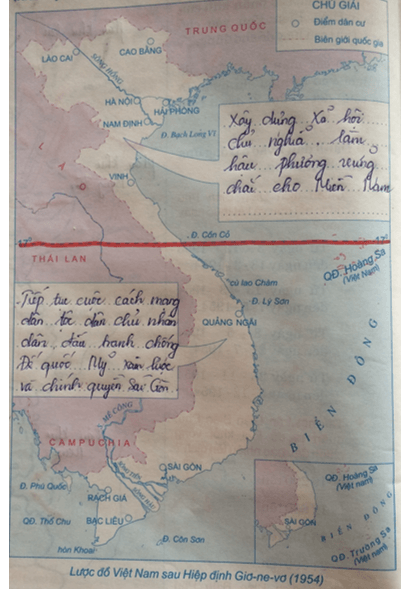 CHÚ GIẢI
Điểm dân cư
Biên giới quốc gia
TRUNG QUỐC
LÀO CAI
CAO BẰNG
SÔNG HỒNG
HÀ NỘI
HẢI PHÒNG
NAM ĐỊNH
Đ. Bạch Long Vĩ
Xây dựng Xã hội
chủ nghĩa, làm
hậu phương vững
chắc cho Miền Nam
LÀO
VINH
Đ. Cồn Cỏ
17°
17°
THÁI LAN
QĐ. Hoàng Sa
(Việt Nam)
cù lao Chàm
Đ. Lý Sơn
QUẢNG NGÃI
Tiếp tục cuộc cách mạng
dân tộc dân chủ nhân
dân, đấu tranh chống
Đế quốc Mỹ xâm lược
và chính quyền Sài Gòn
BIỂN ĐÔNG
MÊ CÔNG
CAMPUCHIA
SÀI GÒN
Đ. Phú Quốc
RẠCH GIÁ
SÔNG TIỀN
SÔNG HẬU
QĐ. Thổ Chu
BẠC LIÊU
hòn Khoai
Đ. Côn Sơn
QĐ. Hoàng Sa
(Việt nam)
SÀI GÒN
BIỂN ĐÔNG
QĐ. Trường Sa
(Việt nam)
Lược đồ Việt Nam sau Hiệp định Giơ-ne-vơ (1954)